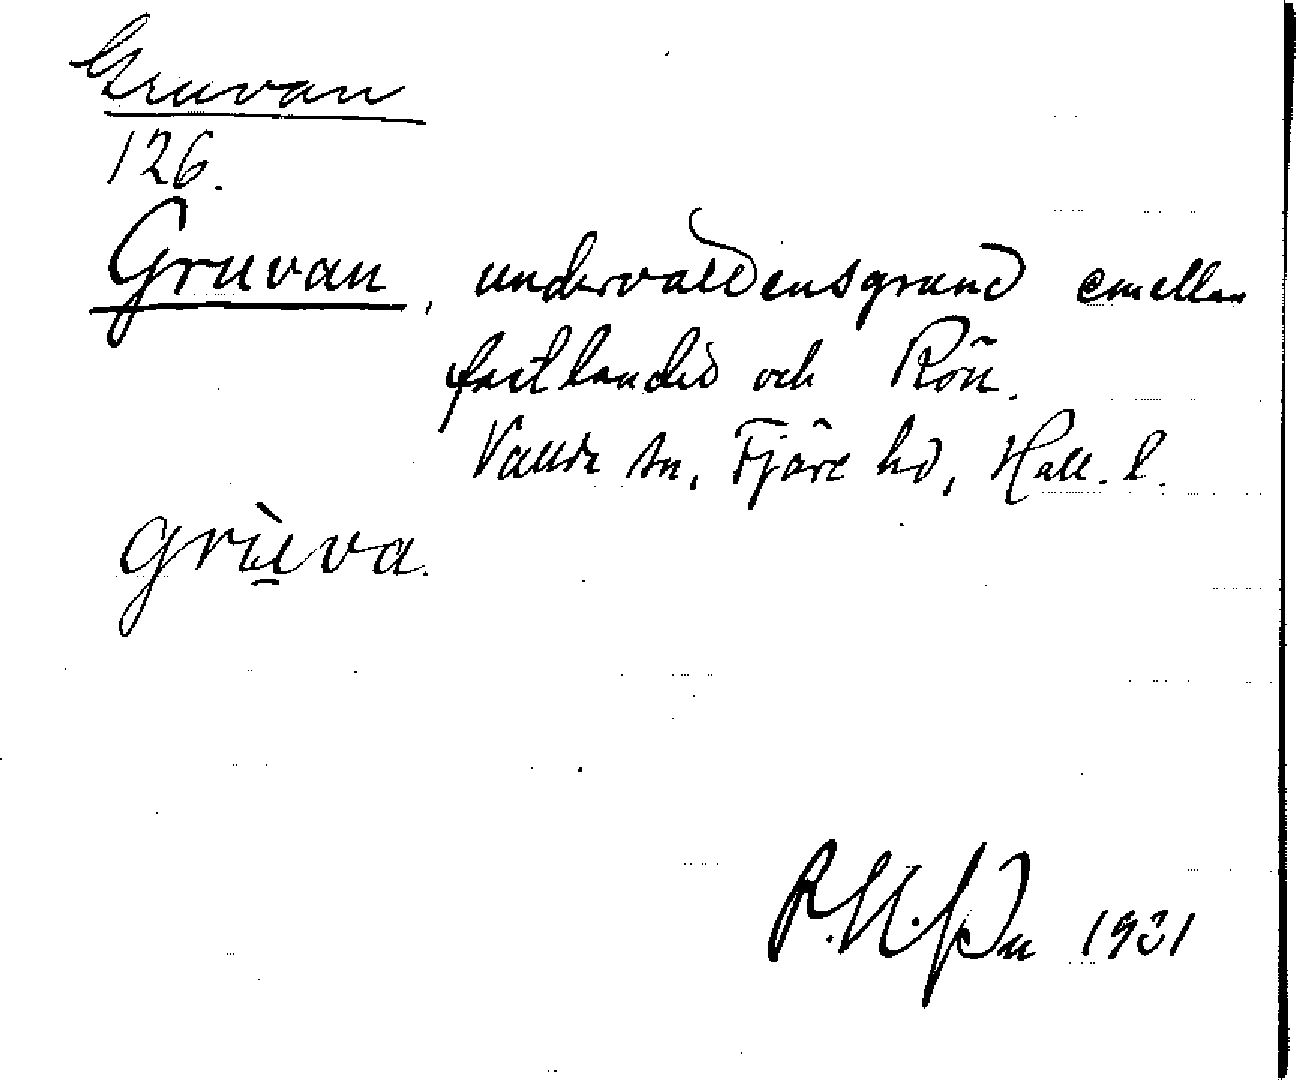 Gruvan
126.
Gruvan, undervattensgrund emellan
fastlandet och Rön.
Vallda sn, Fjäre hd, Hall. l.
grùva.
1931